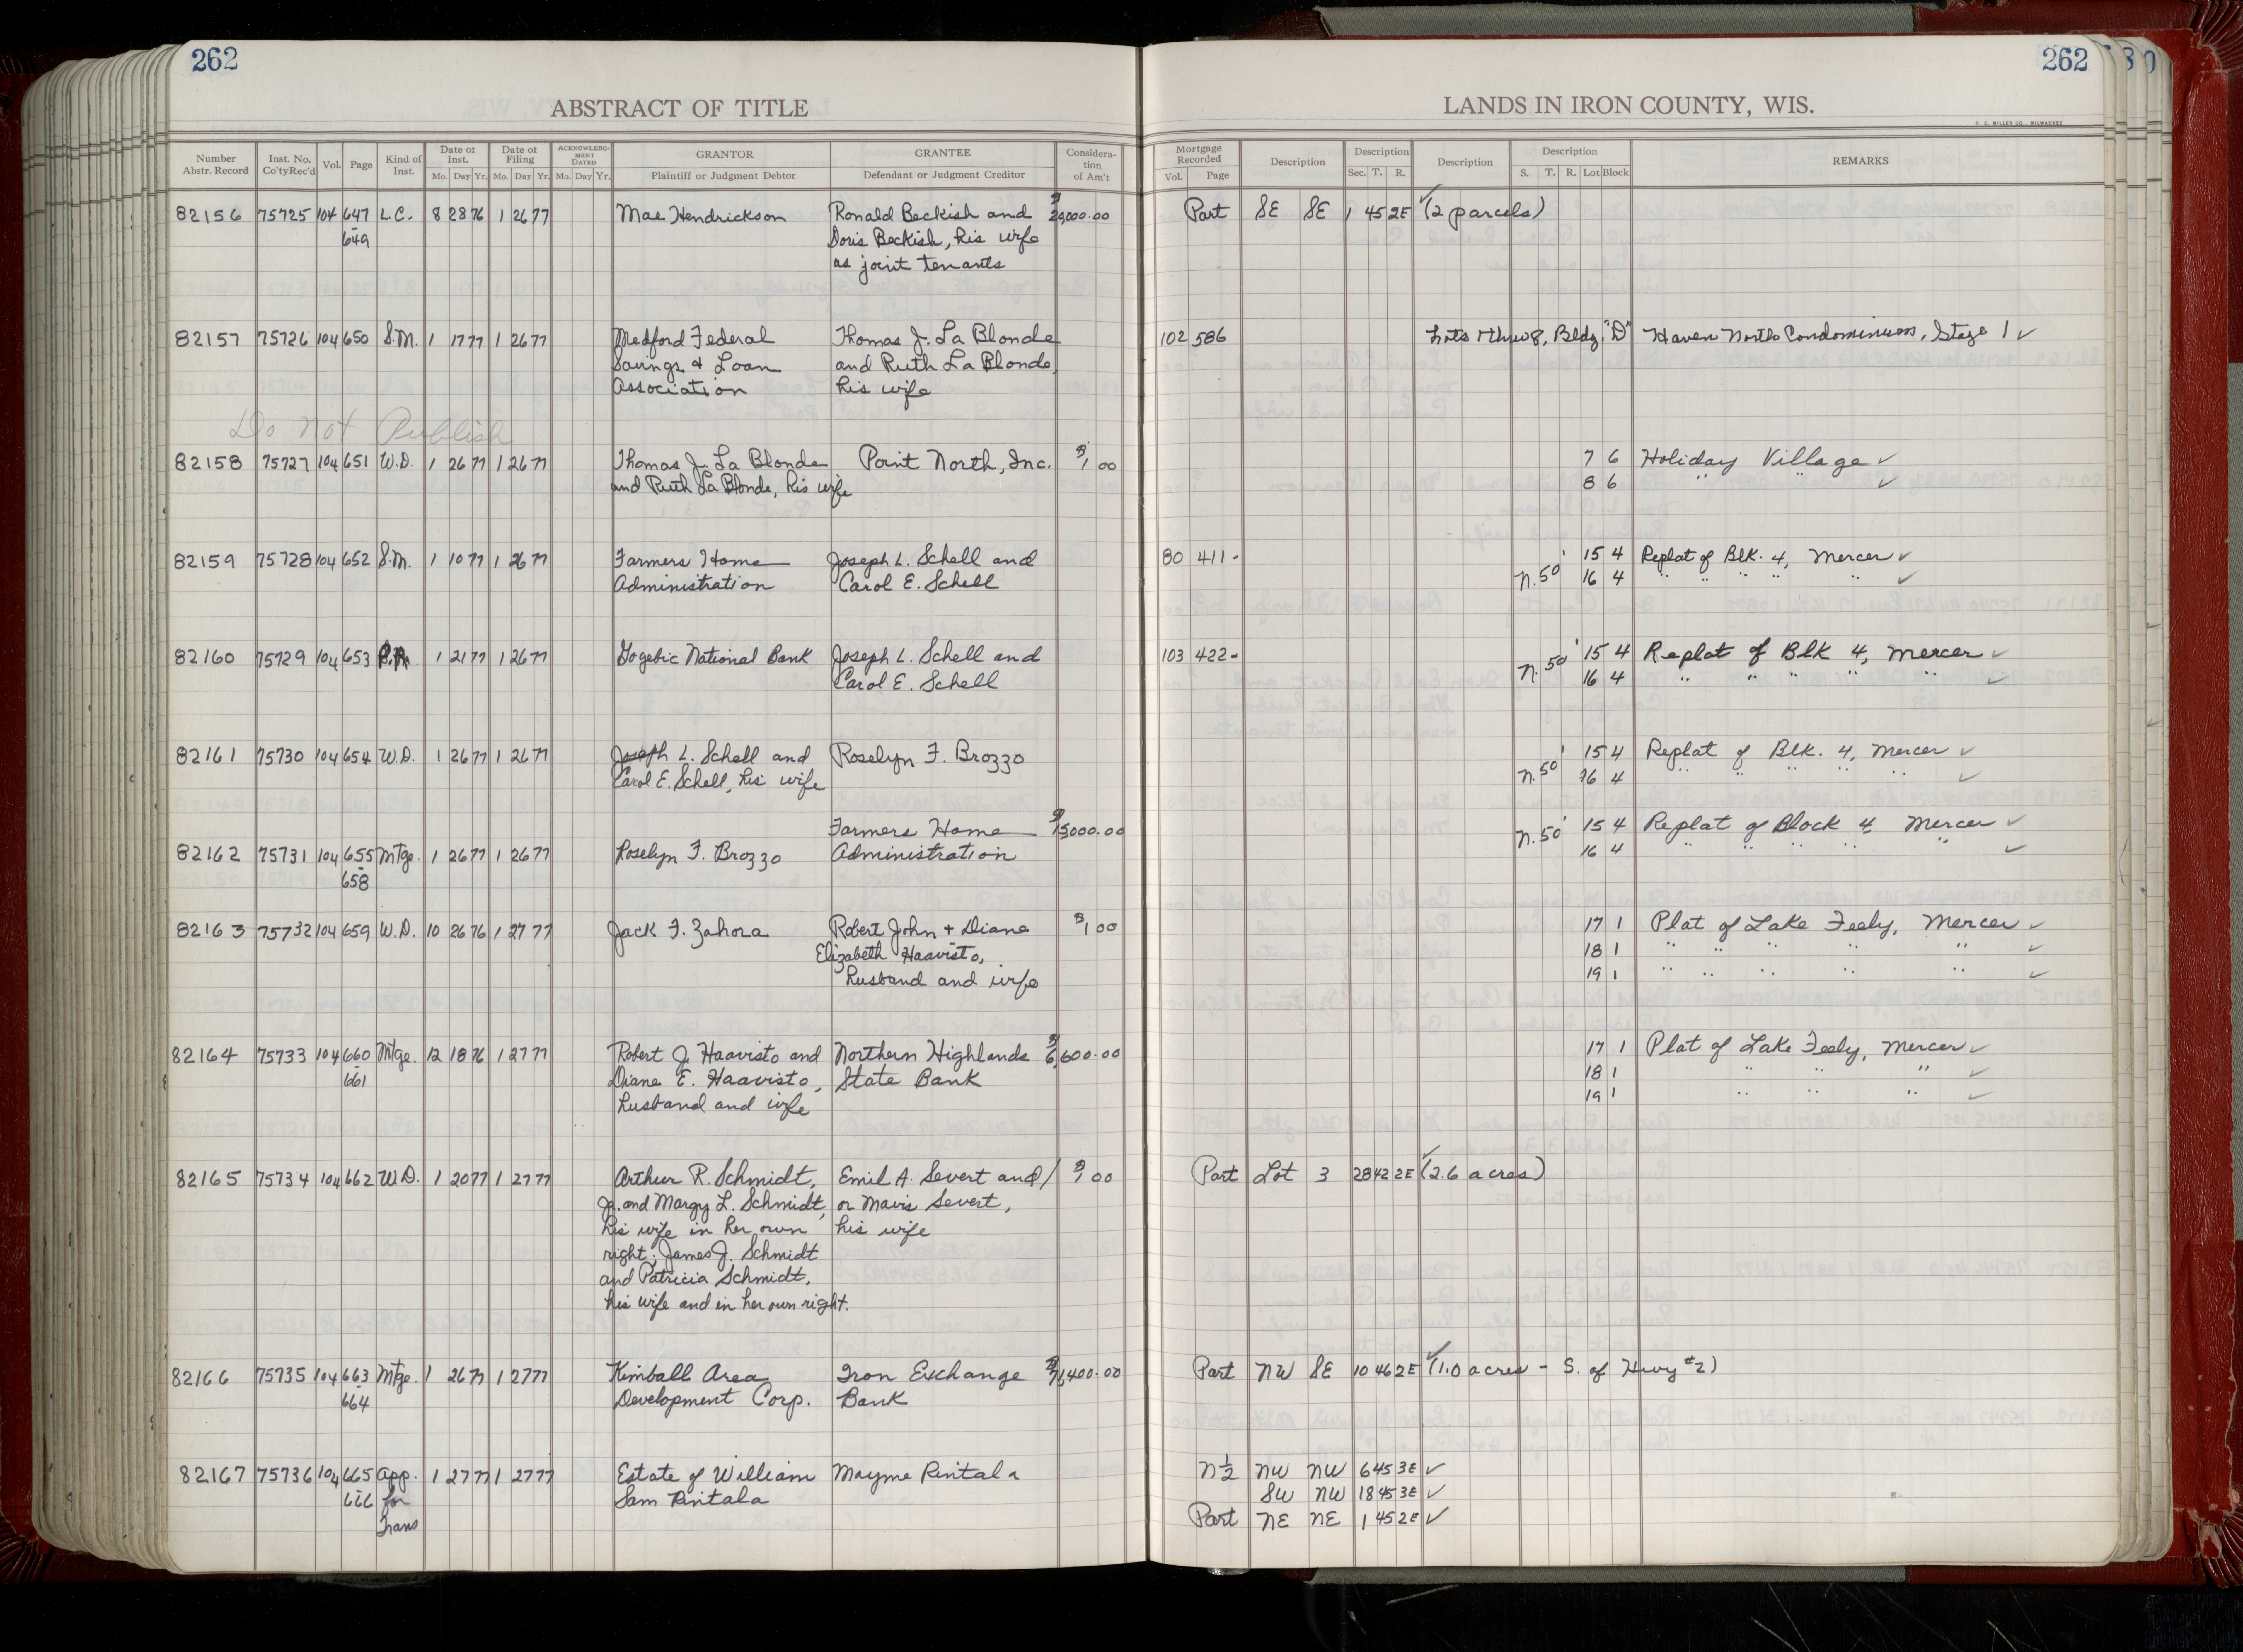 262
262
ABSTRACT OF TITLE
LANDS IN IRON COUNTY, WIS.
H. C. MILLER CO., MILWAUKEE
Number Abstr. Record Inst. No. Co'ty Rec'd Vol. Page Kind of Inst. Date of Inst. Mo. Day Yr. Date of Filing Mo. Day Yr. ACKNOWLEDGMENT DATED Mo. Day Yr. GRANTOR Plaintiff or Judgment Debtor GRANTEE Defendant or Judgment Creditor Consideration of Am't Mortgage Recorded Vol. Page Description Description Sec. T. R. Description Description S. T. R. Lot Block REMARKS
82156 75725 104 647 L.C. 8 28 76 1 26 77 Mae Hendrickson Ronald Beckish and $20,000.00 Part SE SE 1 45 2E (2 parcels)
649 Doris Beckish, his wife
as joint tenants
82157 75726 104 650 S.M. 1 17 77 1 26 77 Medford Federal Thomas J. La Blonde 102 586 Lots 1 thru 8, Bldg. "D" Haven North Condominium, Stage 1 ✓
Savings & Loan and Ruth La Blonde,
Association his wife
Do Not Publish
82158 75727 104 651 W.D. 1 26 77 1 26 77 Thomas J. La Blonde Point North, Inc. $1.00 7 6 Holiday Village ✓
and Ruth La Blonde, his wife 8 6 " " ✓
82159 75728 104 652 S.M. 1 10 77 1 26 77 Farmers Home Joseph L. Schell and 80 411- 15 4 Replat of Blk. 4, Mercer ✓
Administration Carol E. Schell N. 50' 16 4 " " " " " ✓
82160 75729 104 653 1 21 77 1 26 77 Gogebic National Bank Joseph L. Schell and 103 422- 15 4 Replat of Blk 4, Mercer ✓
Carol E. Schell N. 50' 16 4 " " " " " ✓
82161 75730 104 654 W.D. 1 26 77 1 26 77 Joseph L. Schell and Roselyn F. Brozzo 15 4 Replat of Blk. 4, Mercer ✓
Carol E. Schell, his wife N. 50' 16 4 " " " " " ✓
Farmers Home $15000.00 15 4 Replat of Block 4, Mercer ✓
82162 75731 104 655 Mtge. 1 26 77 1 26 77 Roselyn F. Brozzo Administration N. 50' 16 4 " " " " " ✓
658
82163 75732 104 659 W.D. 10 26 76 1 27 77 Jack F. Zahora Robert John + Diane $1.00 17 1 Plat of Lake Feely, Mercer ✓
Elizabeth Haavisto, 18 1 " " " " " ✓
husband and wife 19 1 " " " " " ✓
82164 75733 104 660 Mtge. 12 18 76 1 27 77 Robert J. Haavisto and Northern Highlands $6,600.00 17 1 Plat of Lake Feely, Mercer ✓
661 Diane E. Haavisto, State Bank 18 1 " " " ✓
husband and wife 19 1 " " " ✓
82165 75734 104 662 W.D. 1 20 77 1 27 77 Arthur R. Schmidt, Emil A. Severt and/ $1.00 Part Lot 3 28 42 2E (2.6 acres)
Jr. and Margy L. Schmidt, or Mavis Severt,
his wife in her own his wife
right; James J. Schmidt
and Patricia Schmidt,
his wife and in her own right.
82166 75735 104 663 Mtge. 1 26 77 1 27 77 Kimball Area Iron Exchange Part NW SE 10 46 2E (1.0 acres - S. of Hwy #2)
664 Development Corp. Bank
82167 75736 104 665 App. 1 27 77 1 27 77 Estate of William Mayme Rintala N½ NW NW 6 45 3E ✓
666 for Sam Rintala SW NW 18 45 3E ✓
Trans Part NE NE 1 45 2E ✓